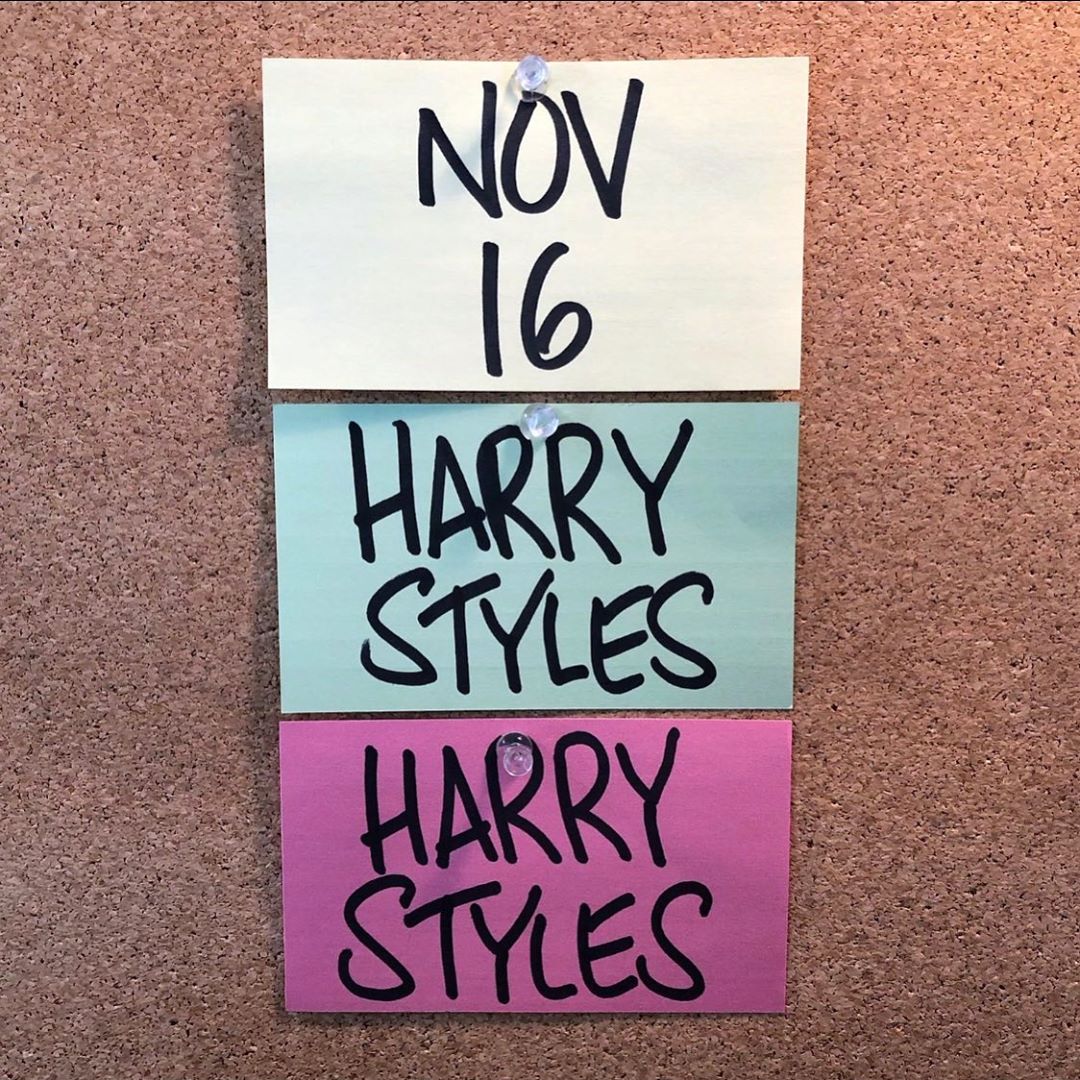 NOV
16
HARRY
STYLES
HARRY
STYLES